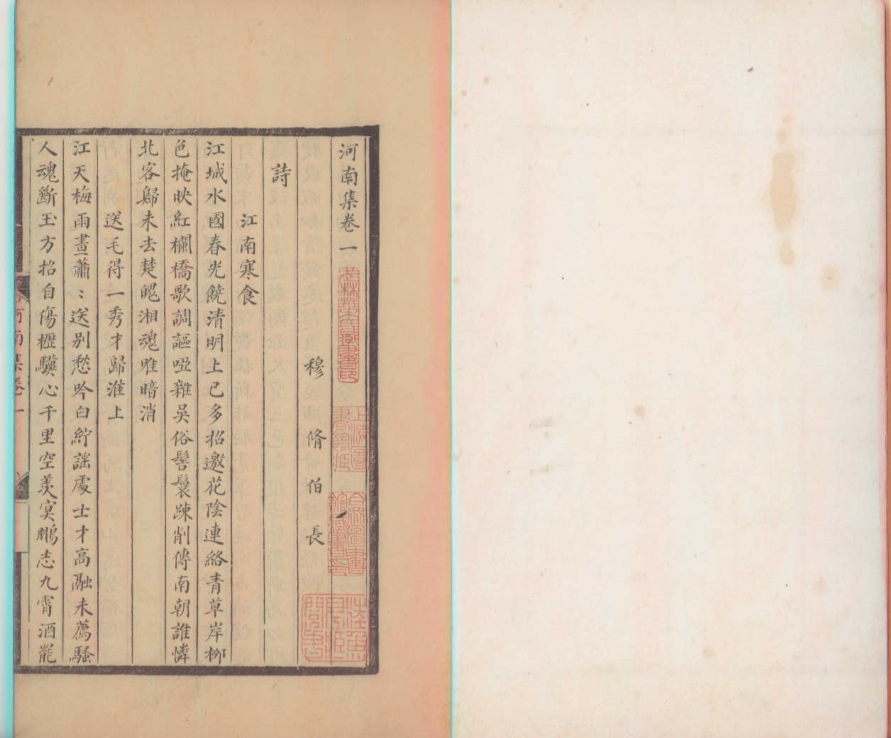 河南集卷一
穆脩伯長
詩
江南寒食
江城水國春光饒清明上巳多招邀花陰連絡青草岸栁
色掩映紅欄橋歌調謳啞雜吳俗髻鬟疎削傳南朝誰憐
北客歸未去楚魄湘魂唯暗消
送毛得一秀才歸淮上
江天梅雨晝蕭〻送别愁吟白紵謡處士才高融未薦騷
人魂斷玉方招自傷櫪驥心千里空羡冥鵬志九霄酒罷
河南集卷一